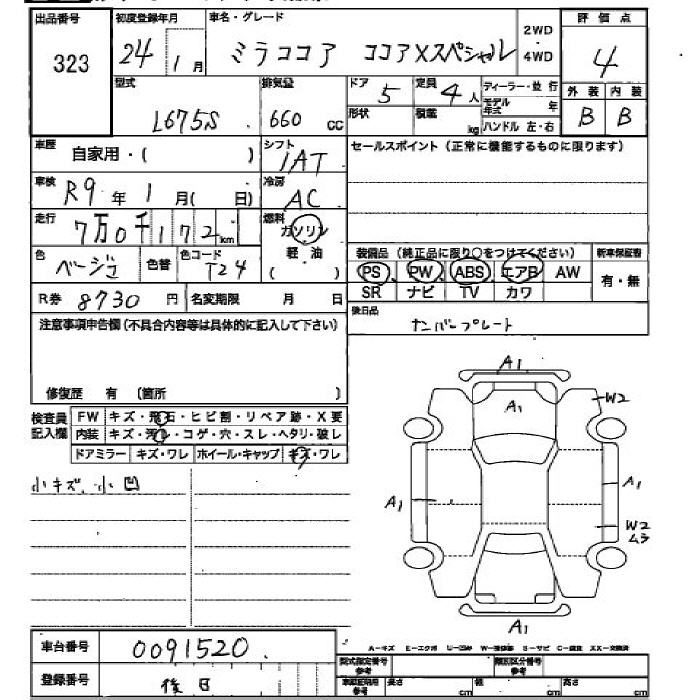 出品番号 初度登録年月 車名・グレード 2WD 4WD 評価点
323 24年1月 ミラココア ココアXスペシャル 4
型式 排気量 ドア 5 定員 4人 ディーラー・並行 外装 内装
L675S 660cc 形状 積載 kg モデル年式 年 B B
ハンドル 左・右
車歴 自家用・( ) シフト IAT セールスポイント(正常に機能するものに限ります)
車検 R9年1月( 日) 冷房 AC
走行 7万0千172km 燃料 ガソリン 軽油 ( )
色 ベージュ 色替 色コード T24
装備品(純正品に限り○をつけてください) 新車保証書
PS PW ABS エアB AW 有・無
SR ナビ TV カワ
R券 8730円 名変期限 月 日
後日品
ナンバープレート
注意事項申告欄(不具合内容等は具体的に記入して下さい)
修復歴 有 〔箇所 〕
検査員記入欄 FW キズ・飛石・ヒビ割・リペア跡・X要
内装 キズ・汚レ・コゲ・穴・スレ・ヘタリ・破レ
ドアミラー キズ・ワレ ホイール・キャップ キズ・ワレ
小キズ、小凹
A1
A1
W2
A1
A1
W2
ムラ
A1
車台番号 0091520
登録番号 後日
型式指定番号 参考 類別区分番号 参考
車庫証明用 参考 長さ cm 幅 cm 高さ cm